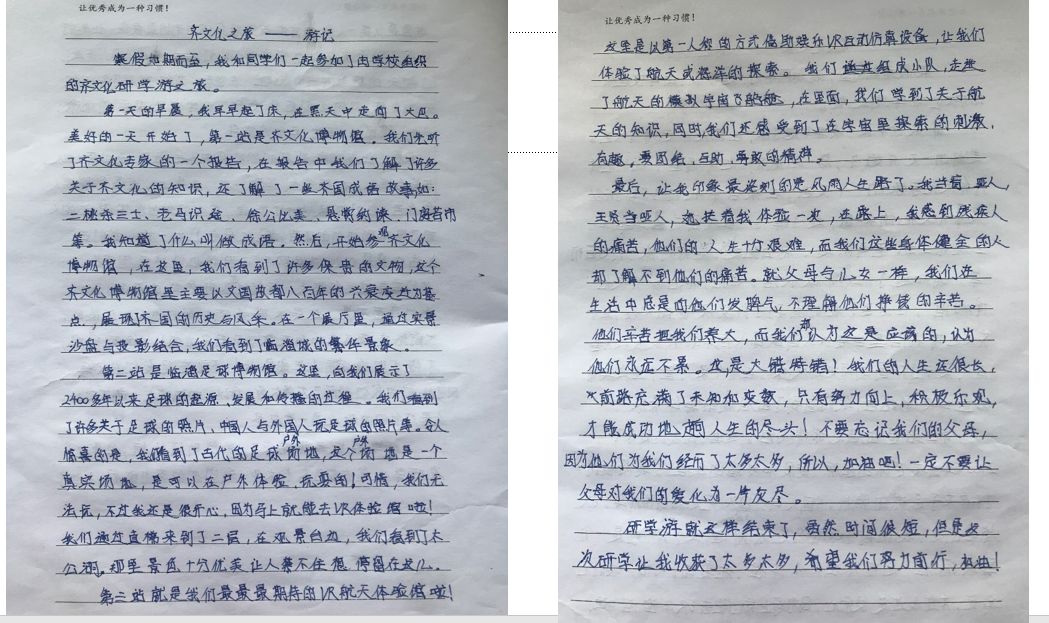 让优秀成为一种习惯！
齐文化之旅——游记
寒假如期而至，我和同学们一起参加了由学校组织
的齐文化研学游之旅。
第一天的早晨，我早早起了床，在黑天中走向了大巴。
美好的一天开始了，第一站是齐文化博物馆。我们先听
了齐文化专家的一个报告，在报告中我们了解了许多
关于齐文化的知识，还了解了一些齐国成语故事如：
二桃杀三士、老马识途、徐公比美、悬鱼约谏、门庭若市
等。我知道了什么叫做成语。然后，开始参观齐文化
博物馆，在这里，我们看到了许多保贵的文物，这个
齐文化博物馆里主要以文国故都八百年的兴衰变迁为基
点，展现齐国的历史与风采。在一个展厅里，通过实景
沙盘与投影结合，我们看到了临淄城的繁华景象。
第二站是临淄足球博物馆。这里，向我们展示了
2400多年以来足球的起源、发展和传播的过程。我们看到
了许多关于足球的照片，中国人与外国人玩足球的照片等。令人
惊喜的是，我们看到了古代的足球户外场地，这个户外场地是一个
真实场地，是可以在户外体验玩耍的！可惜，我们无
法玩，不过我还是很开心，因为马上就能去VR体验馆啦！
我们通过直梯来到了二层，在观景台边，我们看到了太
公湖。那里景色十分优美让人禁不住想停留在这儿。
第三站就是我们最最最期待的VR航天体验馆啦！
让优秀成为一种习惯！
这里是以第一人称的方式借助娱乐VR互动仿真设备，让我们
体验了航天或海洋的探索。我们通过组成小队，走进
了航天的模拟宇宙飞船舱，在里面，我们学到了关于航
天的知识，同时我们还感受到了在宇宙里探索的刺激、
有趣，要团结、互助、勇敢的精神。
最后，让我印象最深刻的是风雨人生路了。我当盲人，
王贤当哑人，她扶着我体验一次，在路上，我感到残疾人
的痛苦，他们的人生十分艰难，而我们这些身体健全的人
却了解不到他们的痛苦。就父母与儿女一样，我们在
生活中总是向他们发脾气，不理解他们挣钱的辛苦。
他们辛苦把我们养大，而我们却认为这是应该的，认为
他们永远不累。这是大错特错！我们的人生还很长，
前路充满了未知和变数，只有努力向上，积极乐观，
才能成功地走向人生的尽头！不要忘记我们的父母，
因为他们为我们经历了太多太多，所以，加油吧！一定不要让
父母对我们的爱化为一片灰尽。
研学游就这样结束了，虽然时间很短，但是这
次研学让我收获了太多太多，希望我们努力前行，加油！